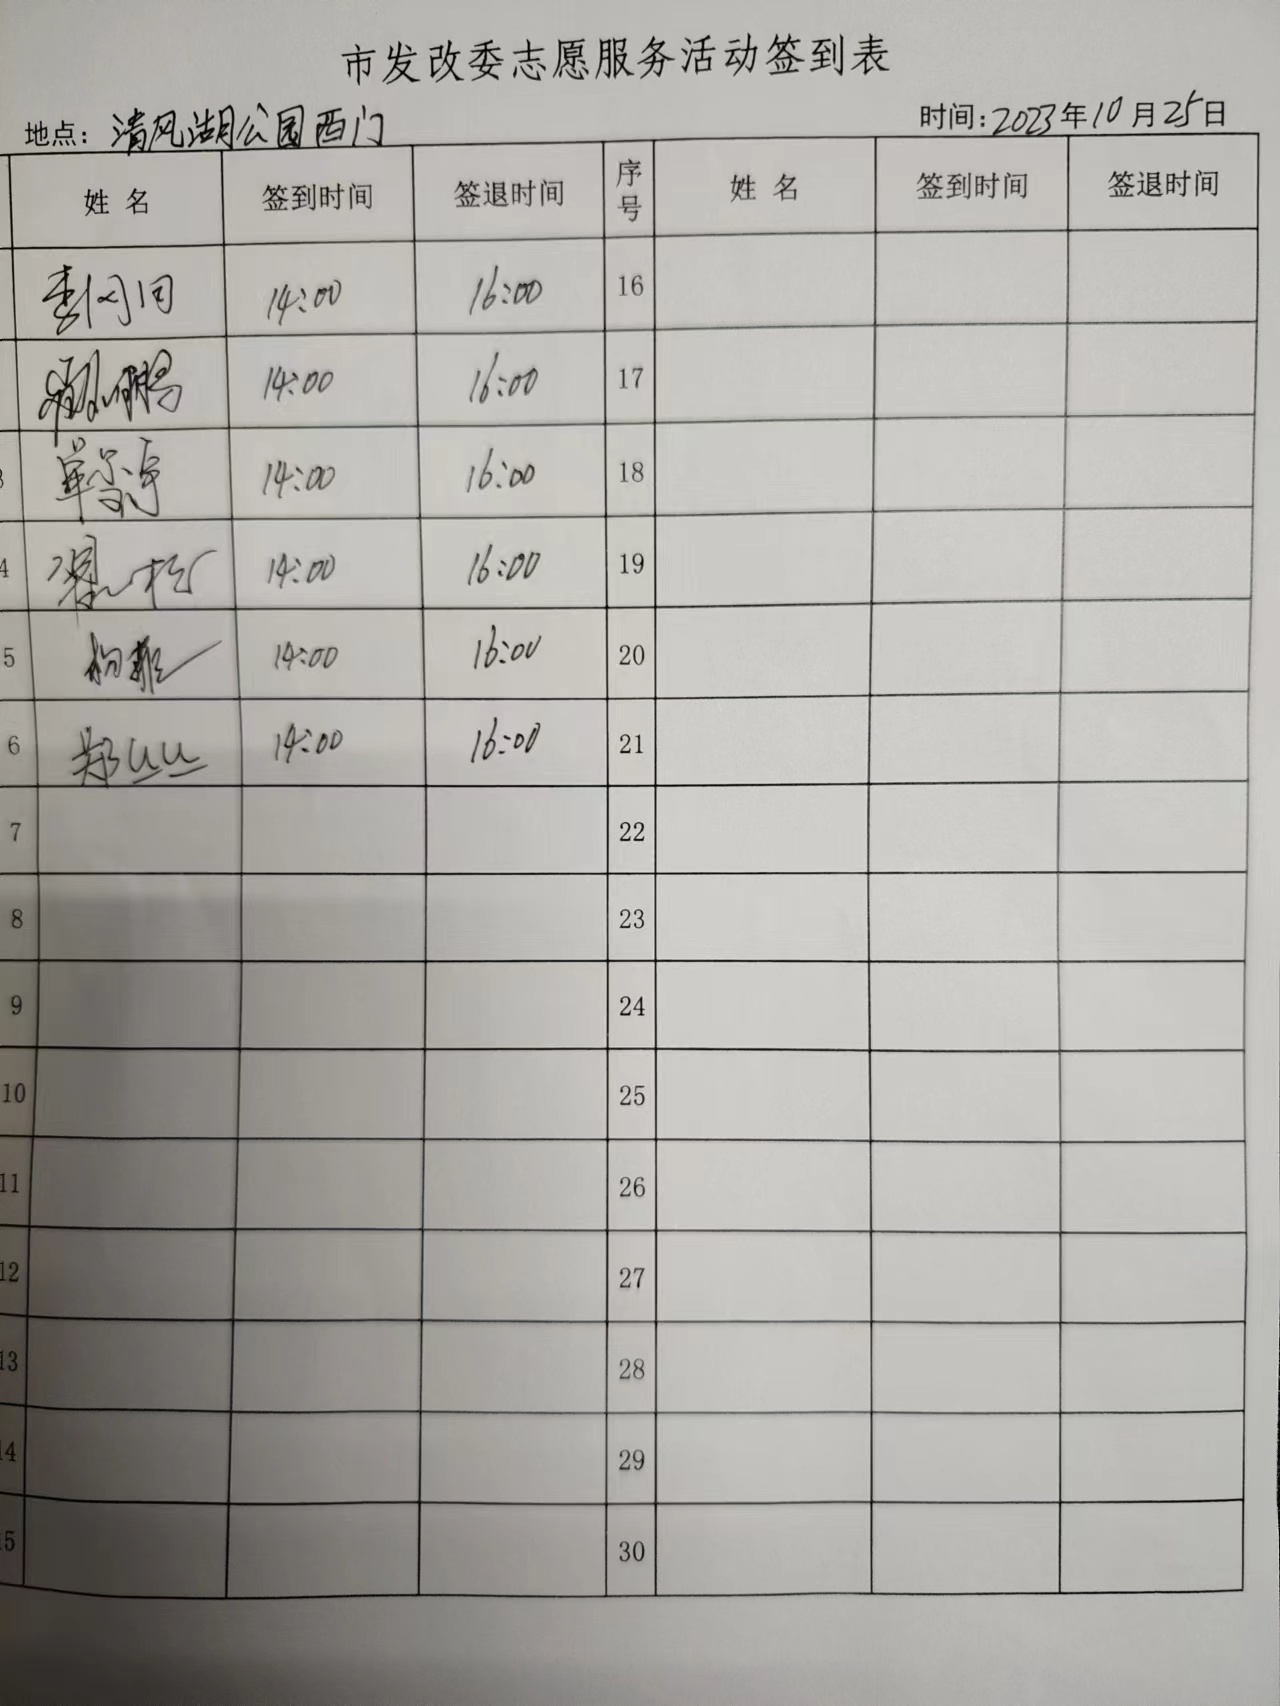 市发改委志愿服务活动签到表
地点：清风湖公园西门 时间：2023年10月25日
姓名 签到时间 签退时间 序号 姓名 签到时间 签退时间
14:00 16:00 16
14:00 16:00 17
3 14:00 16:00 18
4 14:00 16:00 19
5 14:00 16:00 20
6 郑丛丛 14:00 16:00 21
7 22
8 23
9 24
10 25
11 26
12 27
13 28
14 29
15 30